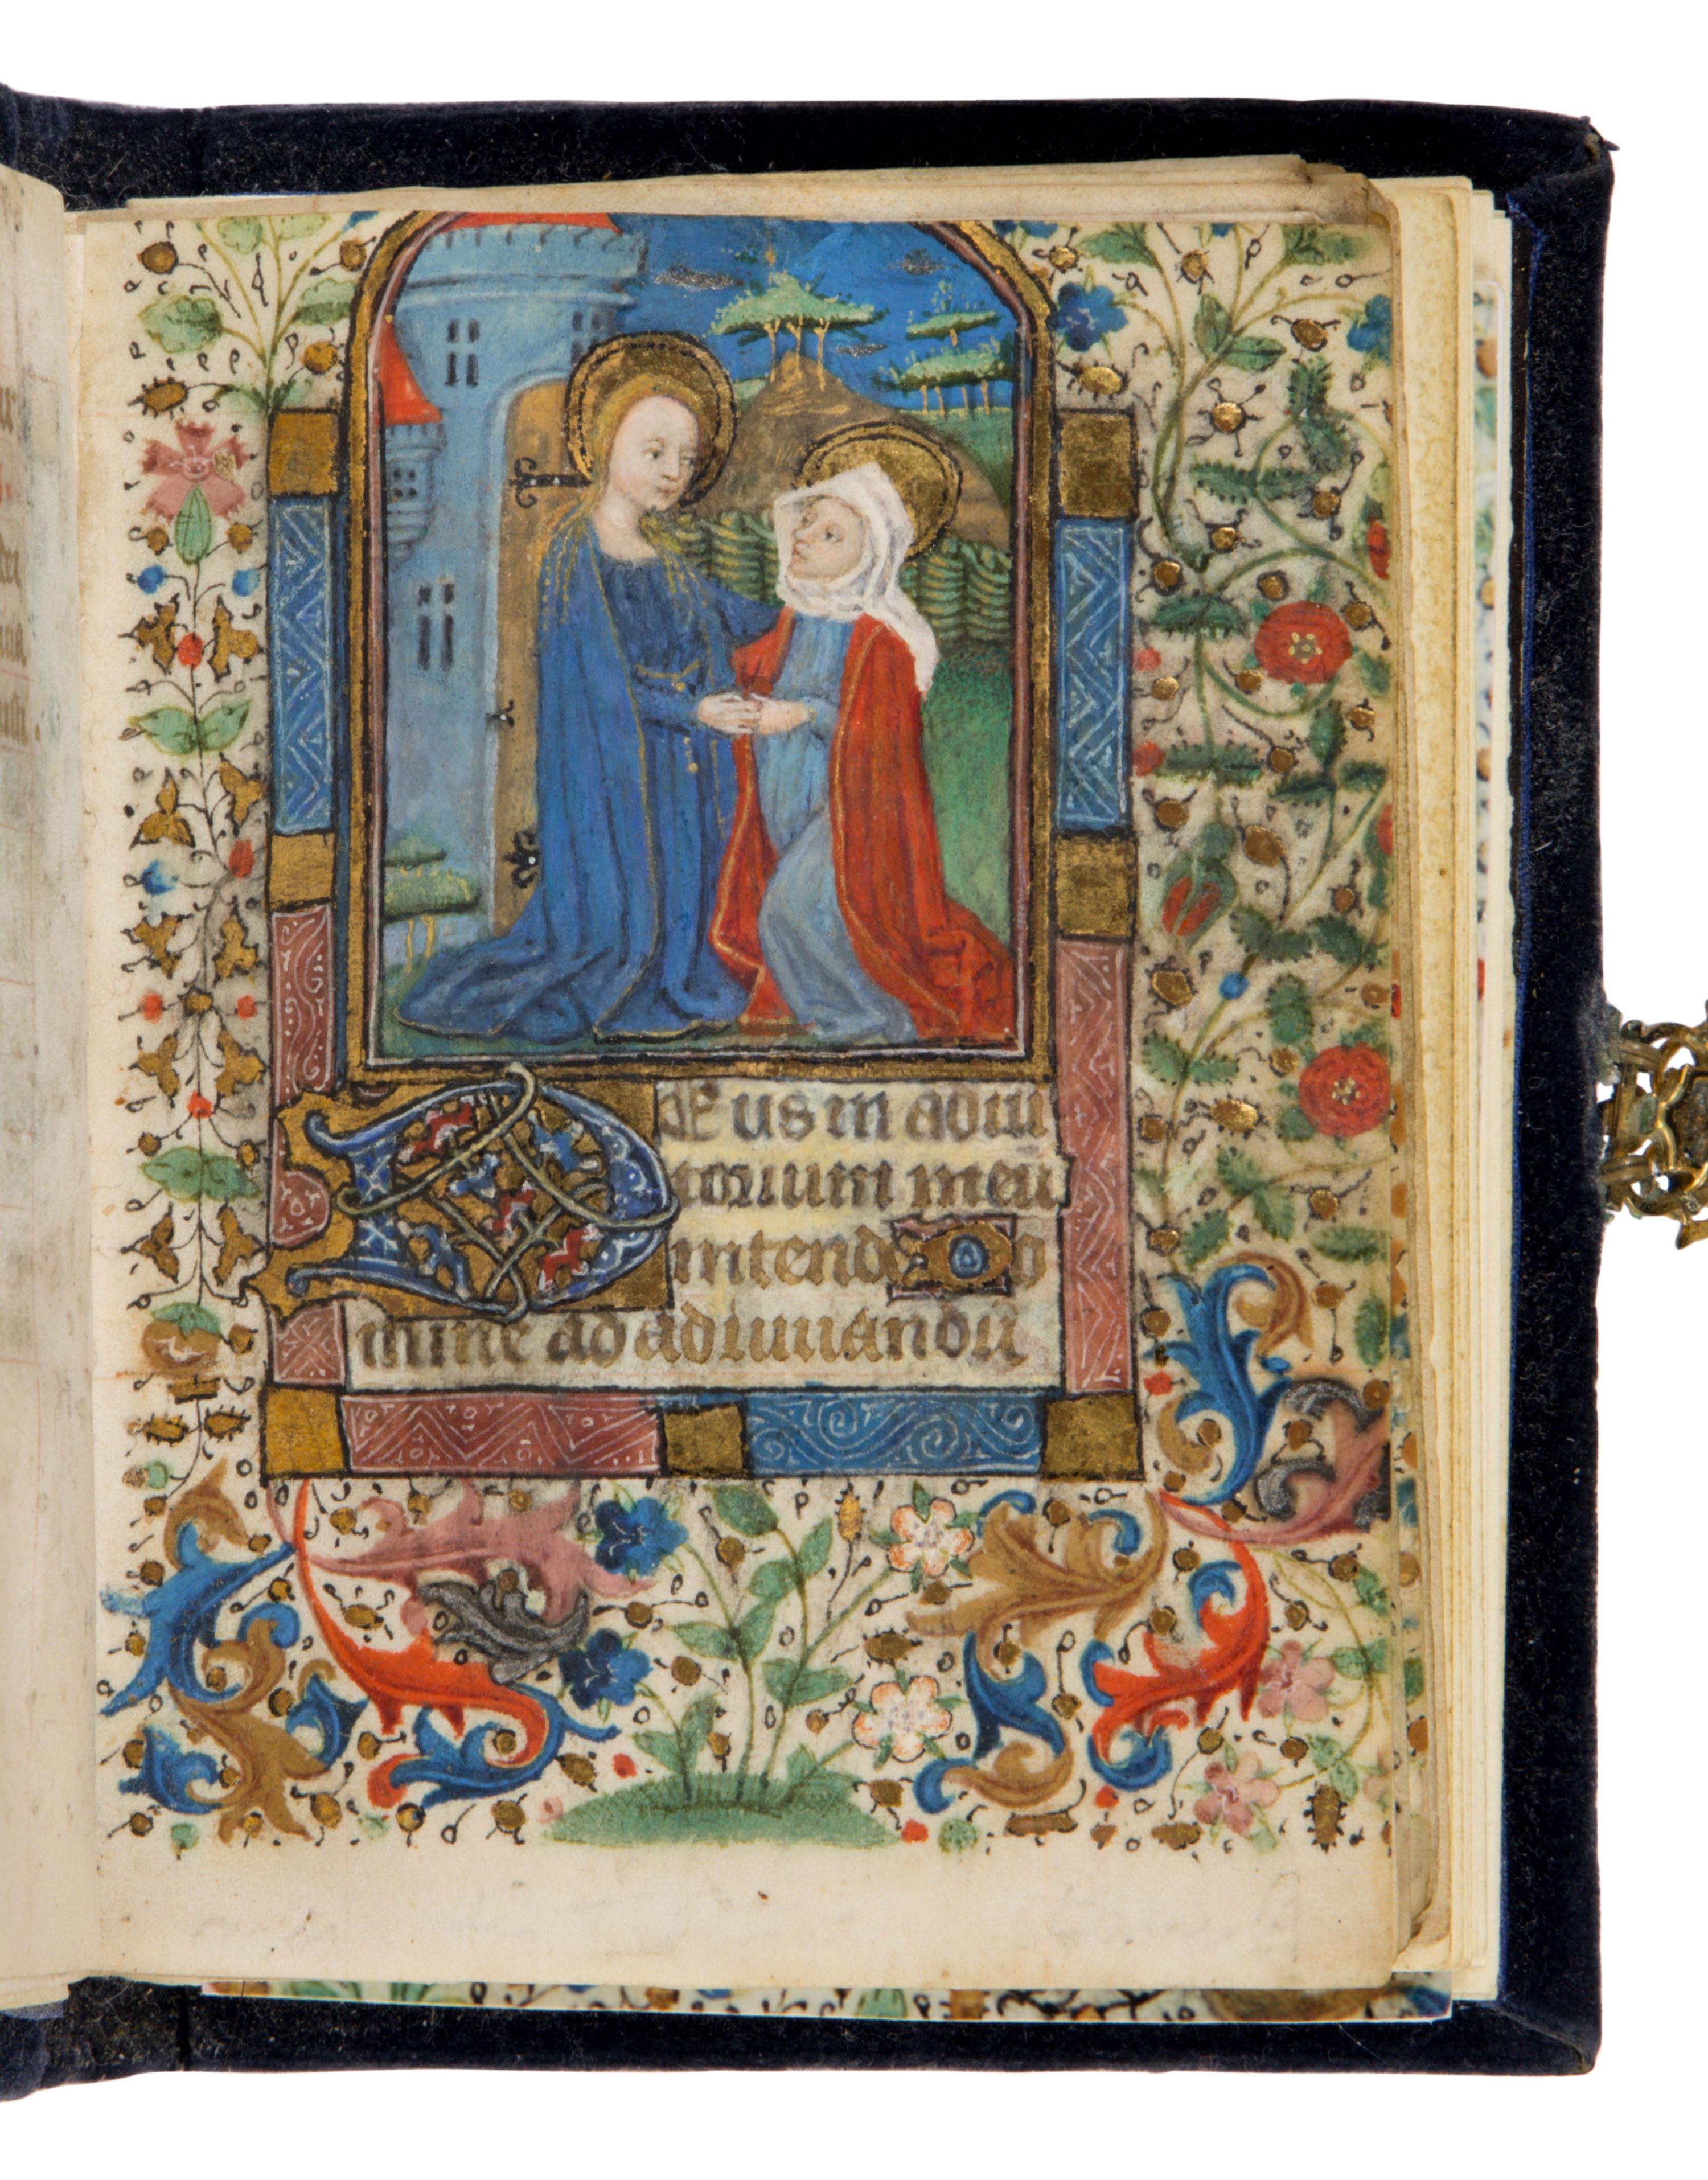 DEus in adiu
torium meū
intende Do
mine ad adiuuandū